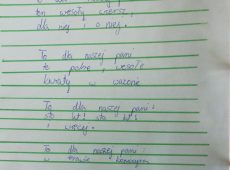 ten wesoły wiersz,
dla niej i o niej.
To dla naszej pani
te piękne, wesołe
kwiaty w wazonie
To dla naszej pani:
sto lat! sto lat!
i więcej.
To dla naszej pani
w trawie